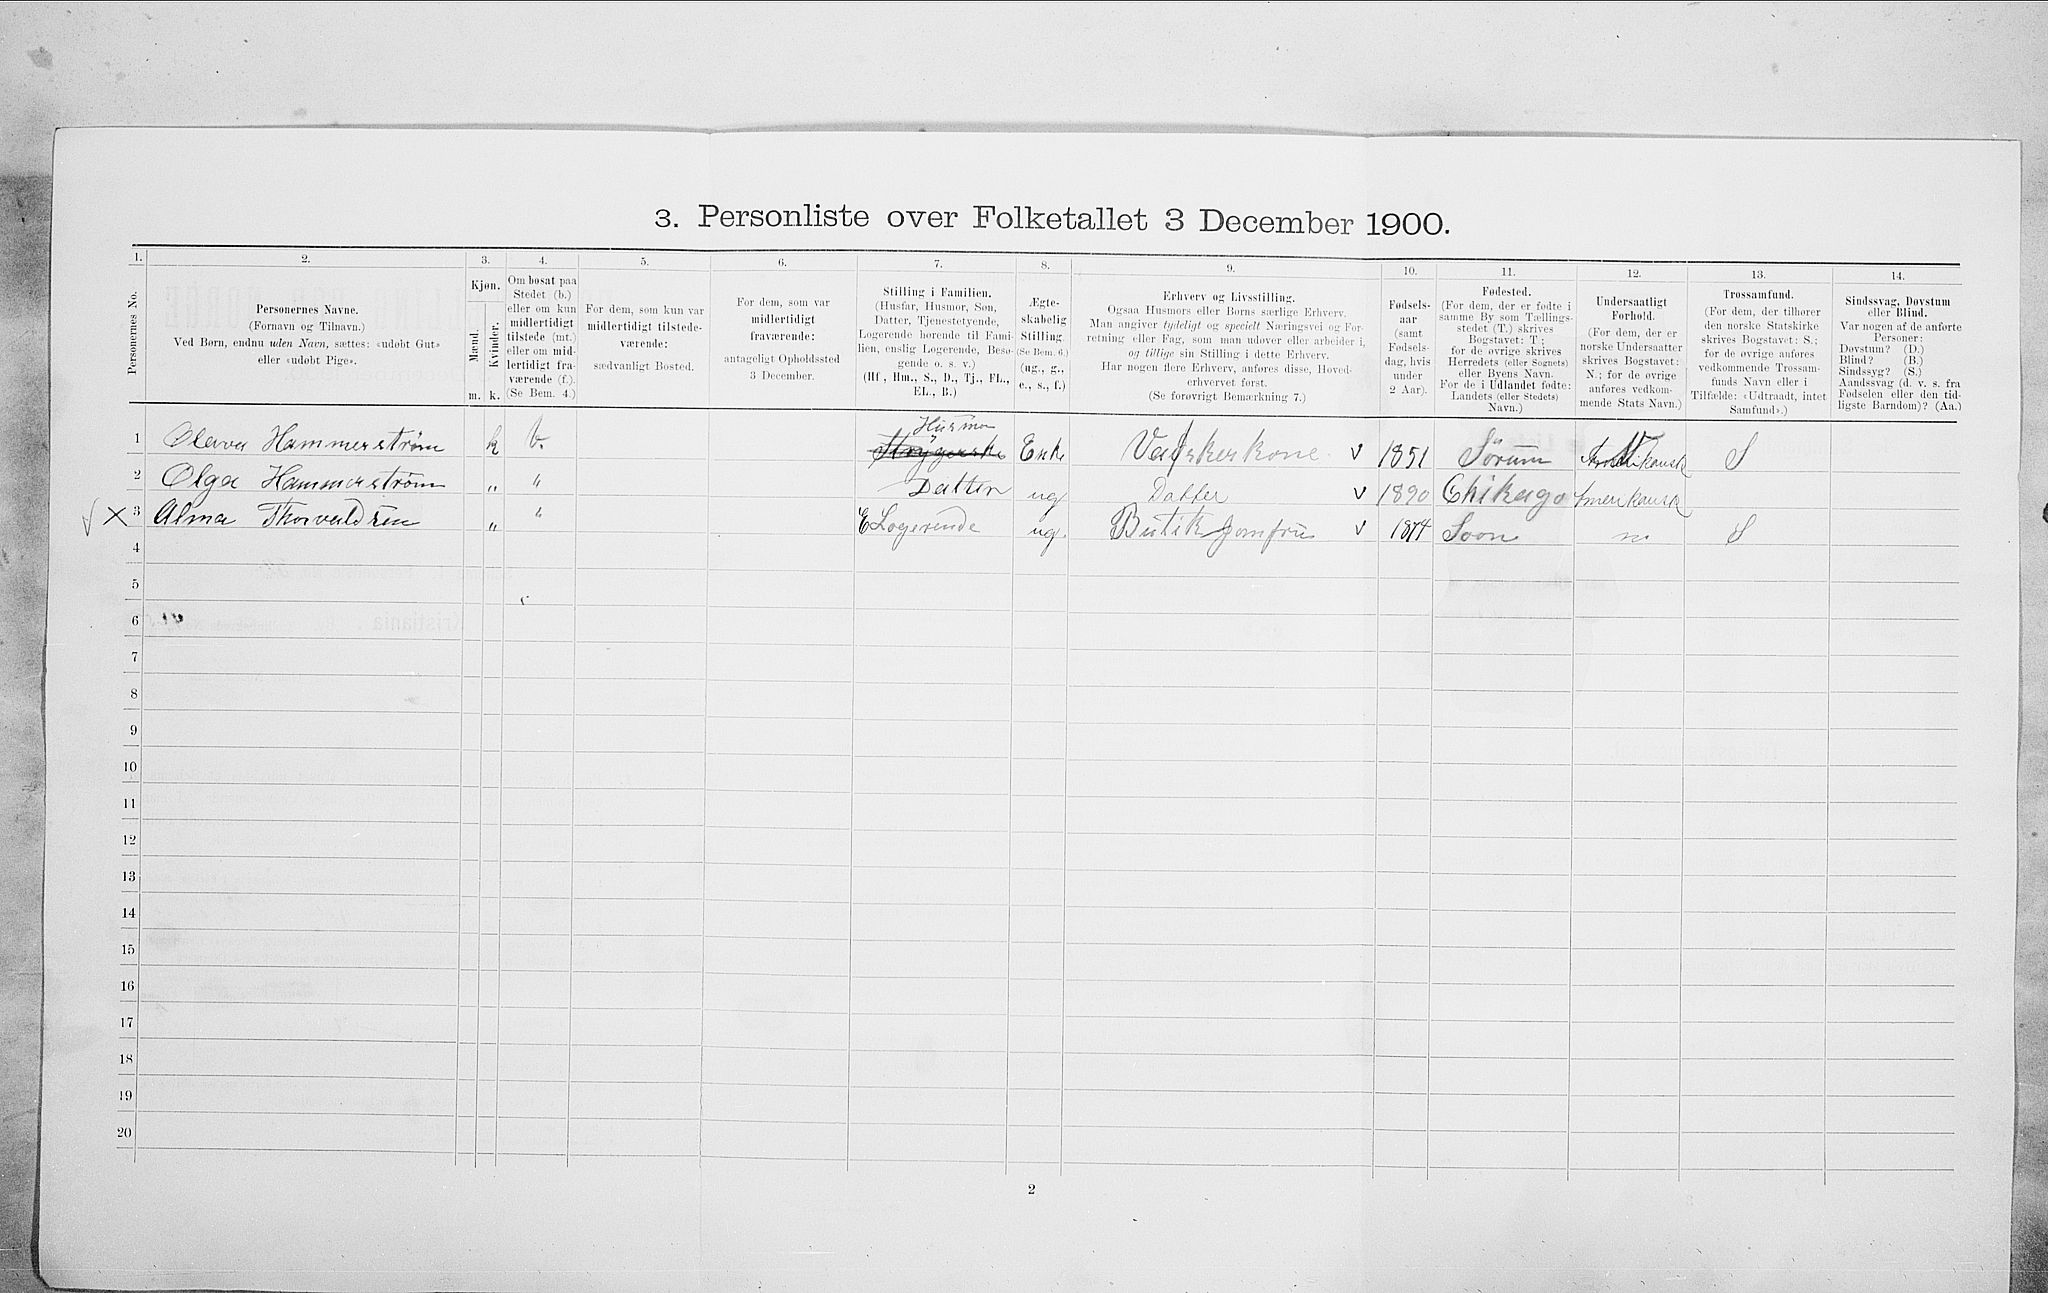 3. Personliste over Folketallet 3 December 1900.
1. 2. 3. 4. 5. 6. 7. 8. 9. 10. 11. 12. 13. 14.
Personernes No.
Personernes Navne.
(Fornavn og Tilnavn.)
Ved Børn, endnu uden Navn, sættes: «udøbt Gut»
eller «udøbt Pige».
Kjøn.
Mænd.
Kvinder.
m. k.
Om bosat paa
Stedet (b.)
eller om kun
midlertidigt
tilstede (mt.)
eller om mid-
lertidigt fra-
værende (f.).
(Se Bem. 4.)
For dem, som kun var
midlertidigt tilstede-
værende:
sædvanligt Bosted.
For dem, som var
midlertidigt
fraværende:
antageligt Opholdssted
3 December.
Stilling i Familien.
(Husfar, Husmor, Søn,
Datter, Tjenestetyende,
Logerende hørende til Fami-
lien, enslig Logerende, Besø-
gende o. s. v.)
(Hf., Hm., S., D., Tj., FL.,
EL., B.)
Ægte-
skabelig
Stilling.
(Se Bem. 6.)
(ug., g.,
e., s., f.)
Erhverv og Livsstilling.
Ogsaa Husmors eller Børns særlige Erhverv.
Man angiver tydeligt og specielt Næringsvei og For-
retning eller Fag, som man udøver eller arbeider i,
og tillige sin Stilling i dette Erhverv.
Har nogen flere Erhverv, anføres disse, Hoved-
erhvervet først.
(Se forøvrigt Bemærkning 7.)
Fødsels-
aar
(samt
Fødsels-
dag, hvis
under
2 Aar).
Fødested.
(For dem, der er fødte i
samme By som Tællings-
stedet (T.) skrives
Bogstavet: T.;
for de øvrige skrives
Herredets (eller Sognets)
eller Byens Navn.
For de i Udlandet fødte:
Landets (eller Stedets)
Navn.)
Undersaatligt
Forhold.
(For dem, der er
norske Undersaatter
skrives Bogstavet:
N.; for de øvrige
anføres vedkom-
mende Stats Navn.)
Trossamfund.
(For dem, der tilhører
den norske Statskirke
skrives Bogstavet: S.;
for de øvrige anføres
vedkommende Trossam-
funds Navn eller i
Tilfælde: «Udtraadt, intet
Samfund».)
Sindssvag, Døvstum
eller Blind.
Var nogen af de anførte
Personer:
Døvstum? (D.)
Blind? (B.)
Sindssyg? (S.)
Aandssvag (d. v. s. fra
Fødselen eller den tid-
ligste Barndom)? (Aa.)
Husmor
1 Olava Hammerstrøm k b. Strygerske Enke Vaskerkone v 1851 Sørum N S
2 Olga Hammerstrøm " " Datter ug Datter v 1890 Chikago Amerikansk
3 Alma Thorvaldsen " " E Logerende ug. Butik Jomfru v 1874 Soon n S
4
5
6
7
8
9
10
11
12
13
14
15
16
17
18
19
20
2